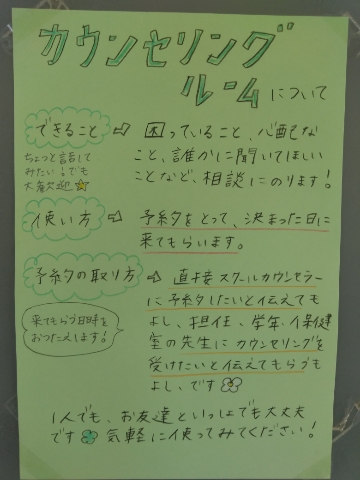 カウンセリング
ルームについて
できること ⇨ 困っていること、心配な
こと、誰かに聞いてほしい
ことなど、相談にのります!
ちょっと話して
みたい!でも
大歓迎☆
使い方 ⇨ 予約をとって、決まった日に
来てもらいます。
予約の取り方 ⇨ 直接スクールカウンセラー
に予約したいと伝えても
よし、担任、学年、保健
室の先生にカウンセリングを
受けたいと伝えてもらうも
よし、です
来てもらう日時を
おつたえします!
1人でも、お友達といっしょでも大丈夫
です 気軽に使ってみてください!